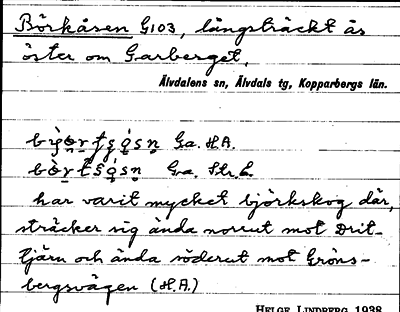 Börkåsen G103, långsträckt ås
öster om Garberget.
Älvdalens sn, Älvdals tg, Kopparbergs län.
Ga. H.A.
Ga. Str. L.
har varit mycket björkskog där,
sträcker sig ända norrut mot Drit-
tjärn och ända söderut mot Gröns-
bergsvägen (H.A.)
HELGE LINDBERG 1938